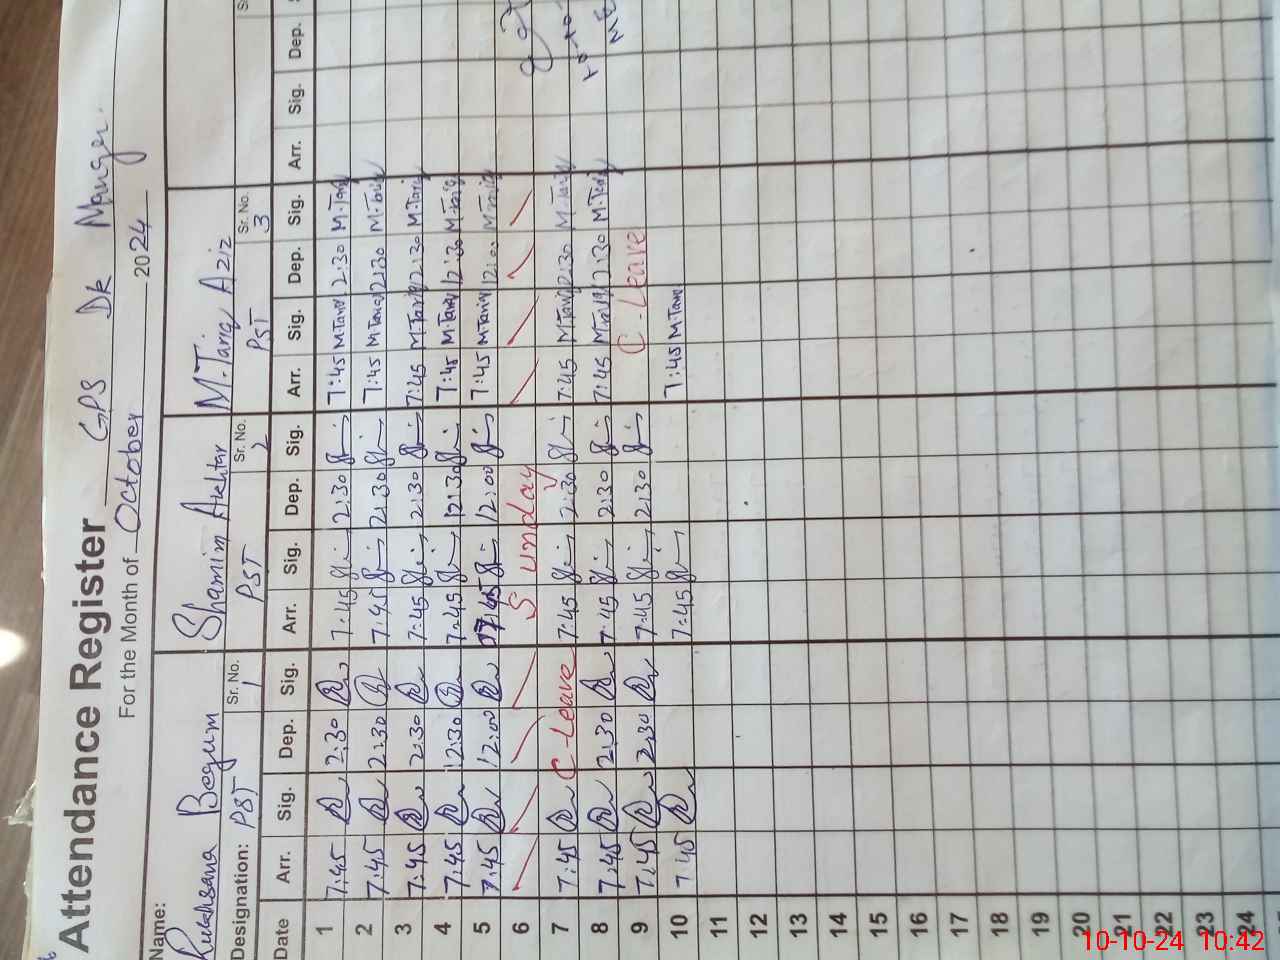 Attendance Register GPS Dk Manger.
For the Month of October 2024
Name: Rukhsana Begum Shamim Akhtar M.Tariq Aziz
Designation: PST Sr. No. 1 PST Sr. No. 2 PST Sr. No. 3
Date Arr. Sig. Dep. Sig. Arr. Sig. Dep. Sig. Arr. Sig. Dep. Sig. Arr. Sig. Dep.
1 7:45 2:30 7:45 2:30 7:45 M.Tariq 2:30 M.Tariq
2 7:45 2:30 7:45 2:30 7:45 M.Tariq 2:30 M.Tariq
3 7:45 2:30 7:45 2:30 7:45 M.Tariq 2:30 M.Tariq
4 7:45 12:30 7:45 12:30 7:45 M.Tariq 12:30 M.Tariq
5 7:45 12:00 7:45 12:00 7:45 M.Tariq 12:00 M.Tariq
6 Sunday
7 7:45 C-Leave 7:45 2:30 7:45 M.Tariq 2:30 M.Tariq
8 7:45 2:30 7:45 2:30 7:45 M.Tariq 2:30 M.Tariq
9 7:45 2:30 7:45 2:30 C-Leave
10 7:45 7:45 7:45 M.Tariq
11
12
13
14
15
16
17
18
19
20
21
22
23
24
10-10-24 10:42